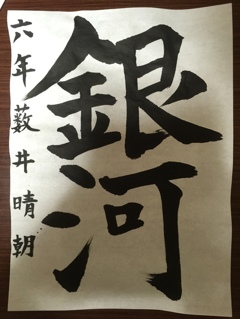 銀河
六年薮井晴朝